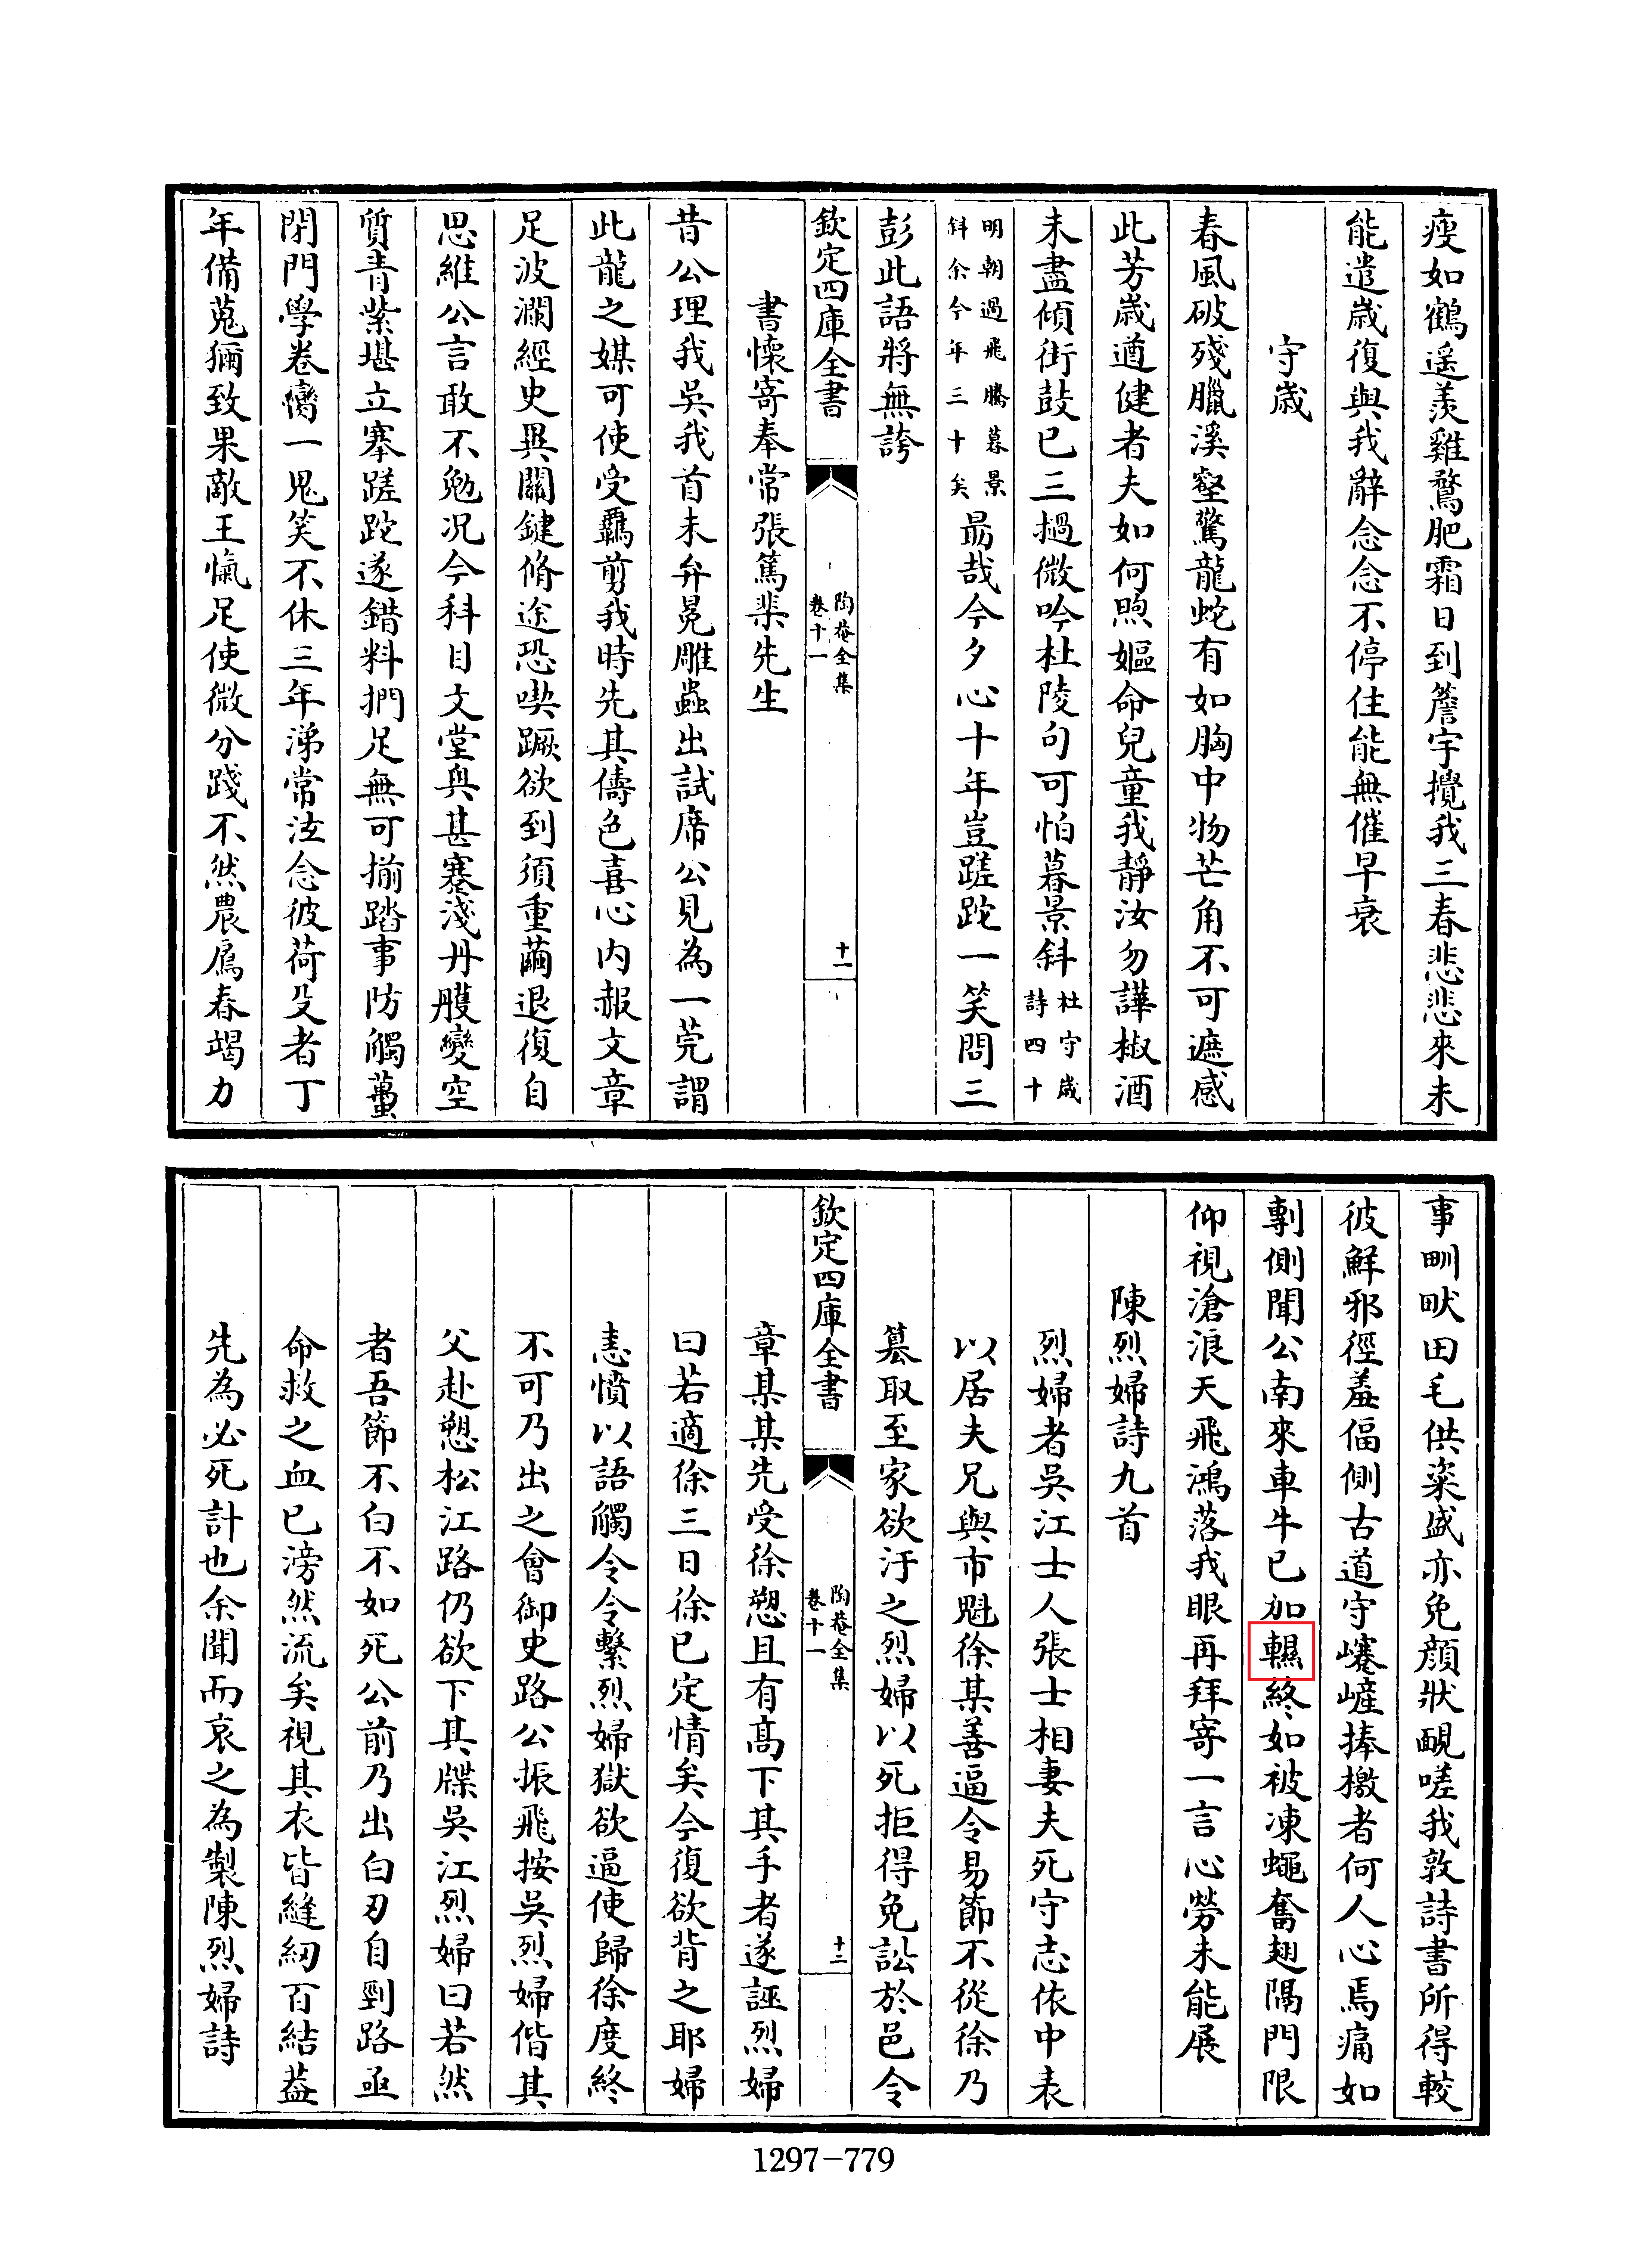 瘦如鶴遥羡雞鶩肥霜日到簷宇攪我三春悲悲來未
能遣歳復與我辭念念不停住能無催早衰
守歳
春風破殘臘溪壑驚龍蛇有如胸中物芒角不可遮感
此芳歳遒健者夫如何煦嫗命兒童我靜汝勿譁椒酒
未盡傾街鼓已三撾微吟杜陵句可怕暮景斜杜守歳
詩四十
明朝過飛騰暮景
斜余今年三十矣勗哉今夕心十年豈蹉跎一笑問三
彭此語將無誇
欽定四庫全書
陶菴全集
卷十一
十一
書懷寄奉常張篤棐先生
昔公理我吳我首未弁冕雕蟲出試席公見為一莞謂
此龍之媒可使受羈剪我時先其儔色喜心内赧文章
足波瀾經史異關鍵脩途恐喫蹶欲到須重繭退復自
思維公言敢不勉况今科目文堂奥甚蹇淺丹艧變空
質青紫堪立搴蹉跎遂錯料捫足無可揃踏事防觸蠆
閉門學卷臠一鬼笑不休三年涕常泫念彼荷殳者丁
年備蒐獮致果敵王愾足使微分踐不然農扈春竭力
事甽畎田毛供粢盛亦免顔狀靦嗟我敦詩書所得較
彼鮮邪徑羞偪側古道守嶘嵼捧檄者何人心焉痛如
剸側聞公南來車牛已加終如被凍蠅奮翅隔門限
仰視滄浪天飛鴻落我眼再拜寄一言心勞未能展
陳烈婦詩九首
烈婦者吳江士人張士相妻夫死守志依中表
以居夫兄與市魁徐某善逼令易節不從徐乃
篡取至家欲汙之烈婦以死拒得免訟於邑令
欽定四庫全書
陶菴全集
卷十一
十二
章某某先受徐愬且有高下其手者遂誣烈婦
曰若適徐三日徐已定情矣今復欲背之耶婦
恚憤以語觸令令繫烈婦獄欲逼使歸徐度終
不可乃出之會御史路公振飛按吳烈婦偕其
父赴愬松江路仍欲下其牒吳江烈婦曰若然
者吾節不白不如死公前乃出白刃自剄路亟
命救之血已滂然流矣視其衣皆縫紉百結葢
先為必死計也余聞而哀之為製陳烈婦詩
1297-779